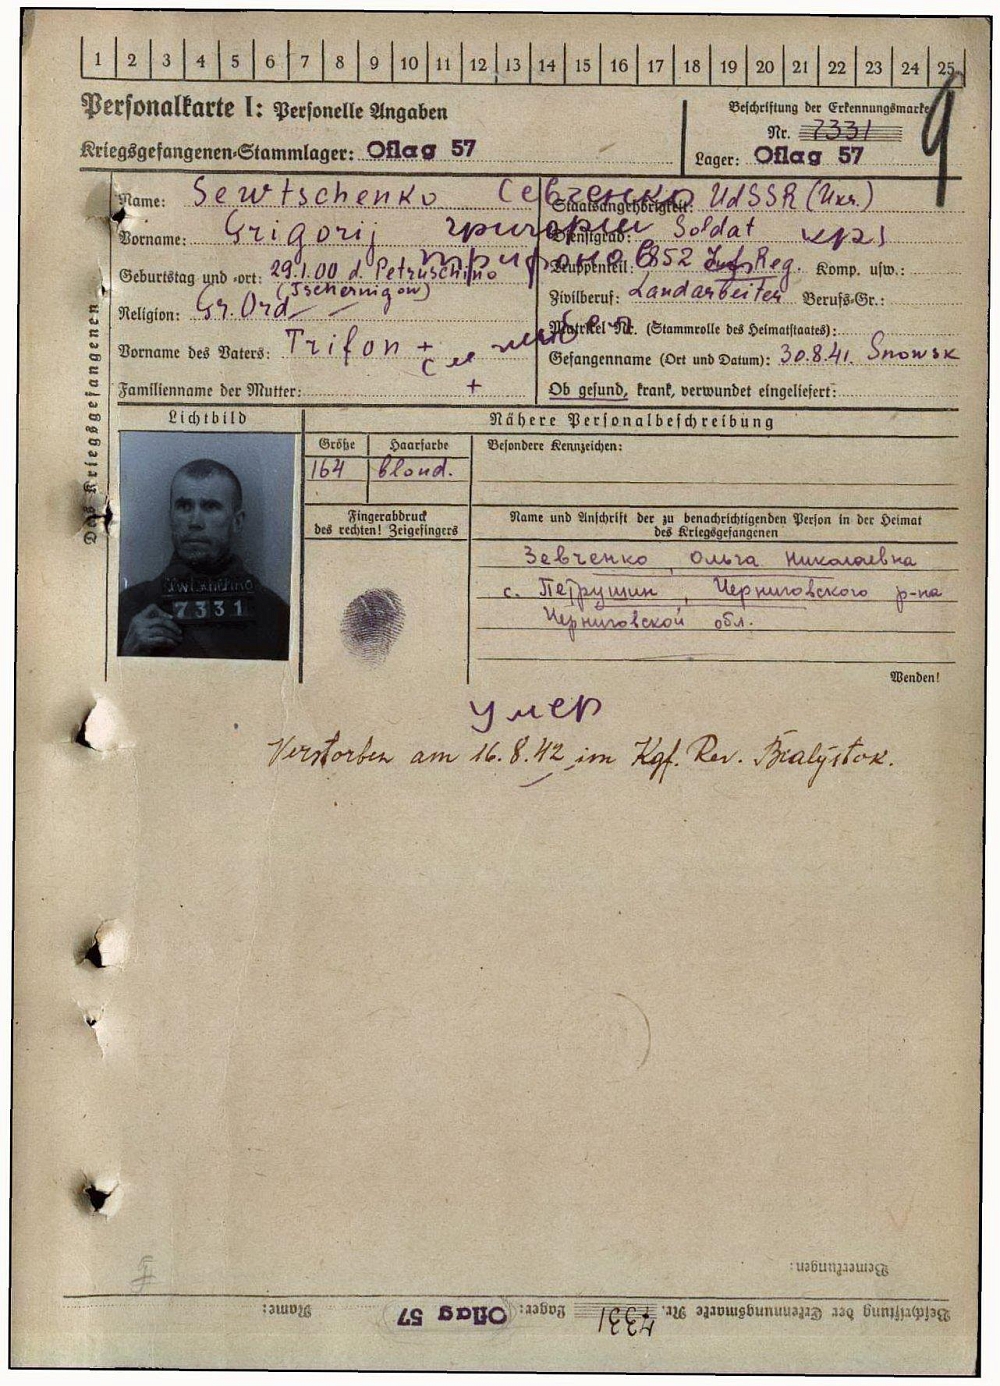 1 2 3 4 5 6 7 8 9 10 11 12 13 14 15 16 17 18 19 20 21 22 23 24 25
9
Personalkarte I: Personelle Angaben
Kriegsgefangenen-Stammlager: Oflag 57
Beschriftung der Erkennungsmarke
Nr. 7331
Lager: Oflag 57
Des Kriegsgefangenen
Name: Sewtschenko Севченко
Vorname: Grigorij григории
Geburtstag und -ort: 29.1.00 d. Petruschino
(Tschernigow)
Religion: Gr. Ord
Vorname des Vaters: Trifon +
+
Familienname der Mutter:
Staatsangehörigkeit: UdSSR (Ukr.)
Dienstgrad: Soldat укр
Truppenteil: 852 Inf. Reg. Komp. usw.:
Zivilberuf: Landarbeiter Berufs-Gr.:
Matrikel Nr. (Stammrolle des Heimatstaates):
Gefangenname (Ort und Datum): 30.8.41. Snowsk
Ob gesund, krank, verwundet eingeliefert:
Lichtbild
Nähere Personalbeschreibung
Größe Haarfarbe Besondere Kennzeichen:
164 blond.
Fingerabdruck
des rechten! Zeigefingers
Name und Anschrift der zu benachrichtigenden Person in der Heimat
des Kriegsgefangenen
Зевченко Ольга Николаевна
с. Петрушин, Черниговского р-на
Черниговской обл.
7331
Wenden!
умер
Verstorben am 16.8.42 im Kgf. Rev. Bialystok.
Bemerkungen:
Beschriftung der Erkennungsmarke Nr. 7331 Lager: Oflag 57 Name: